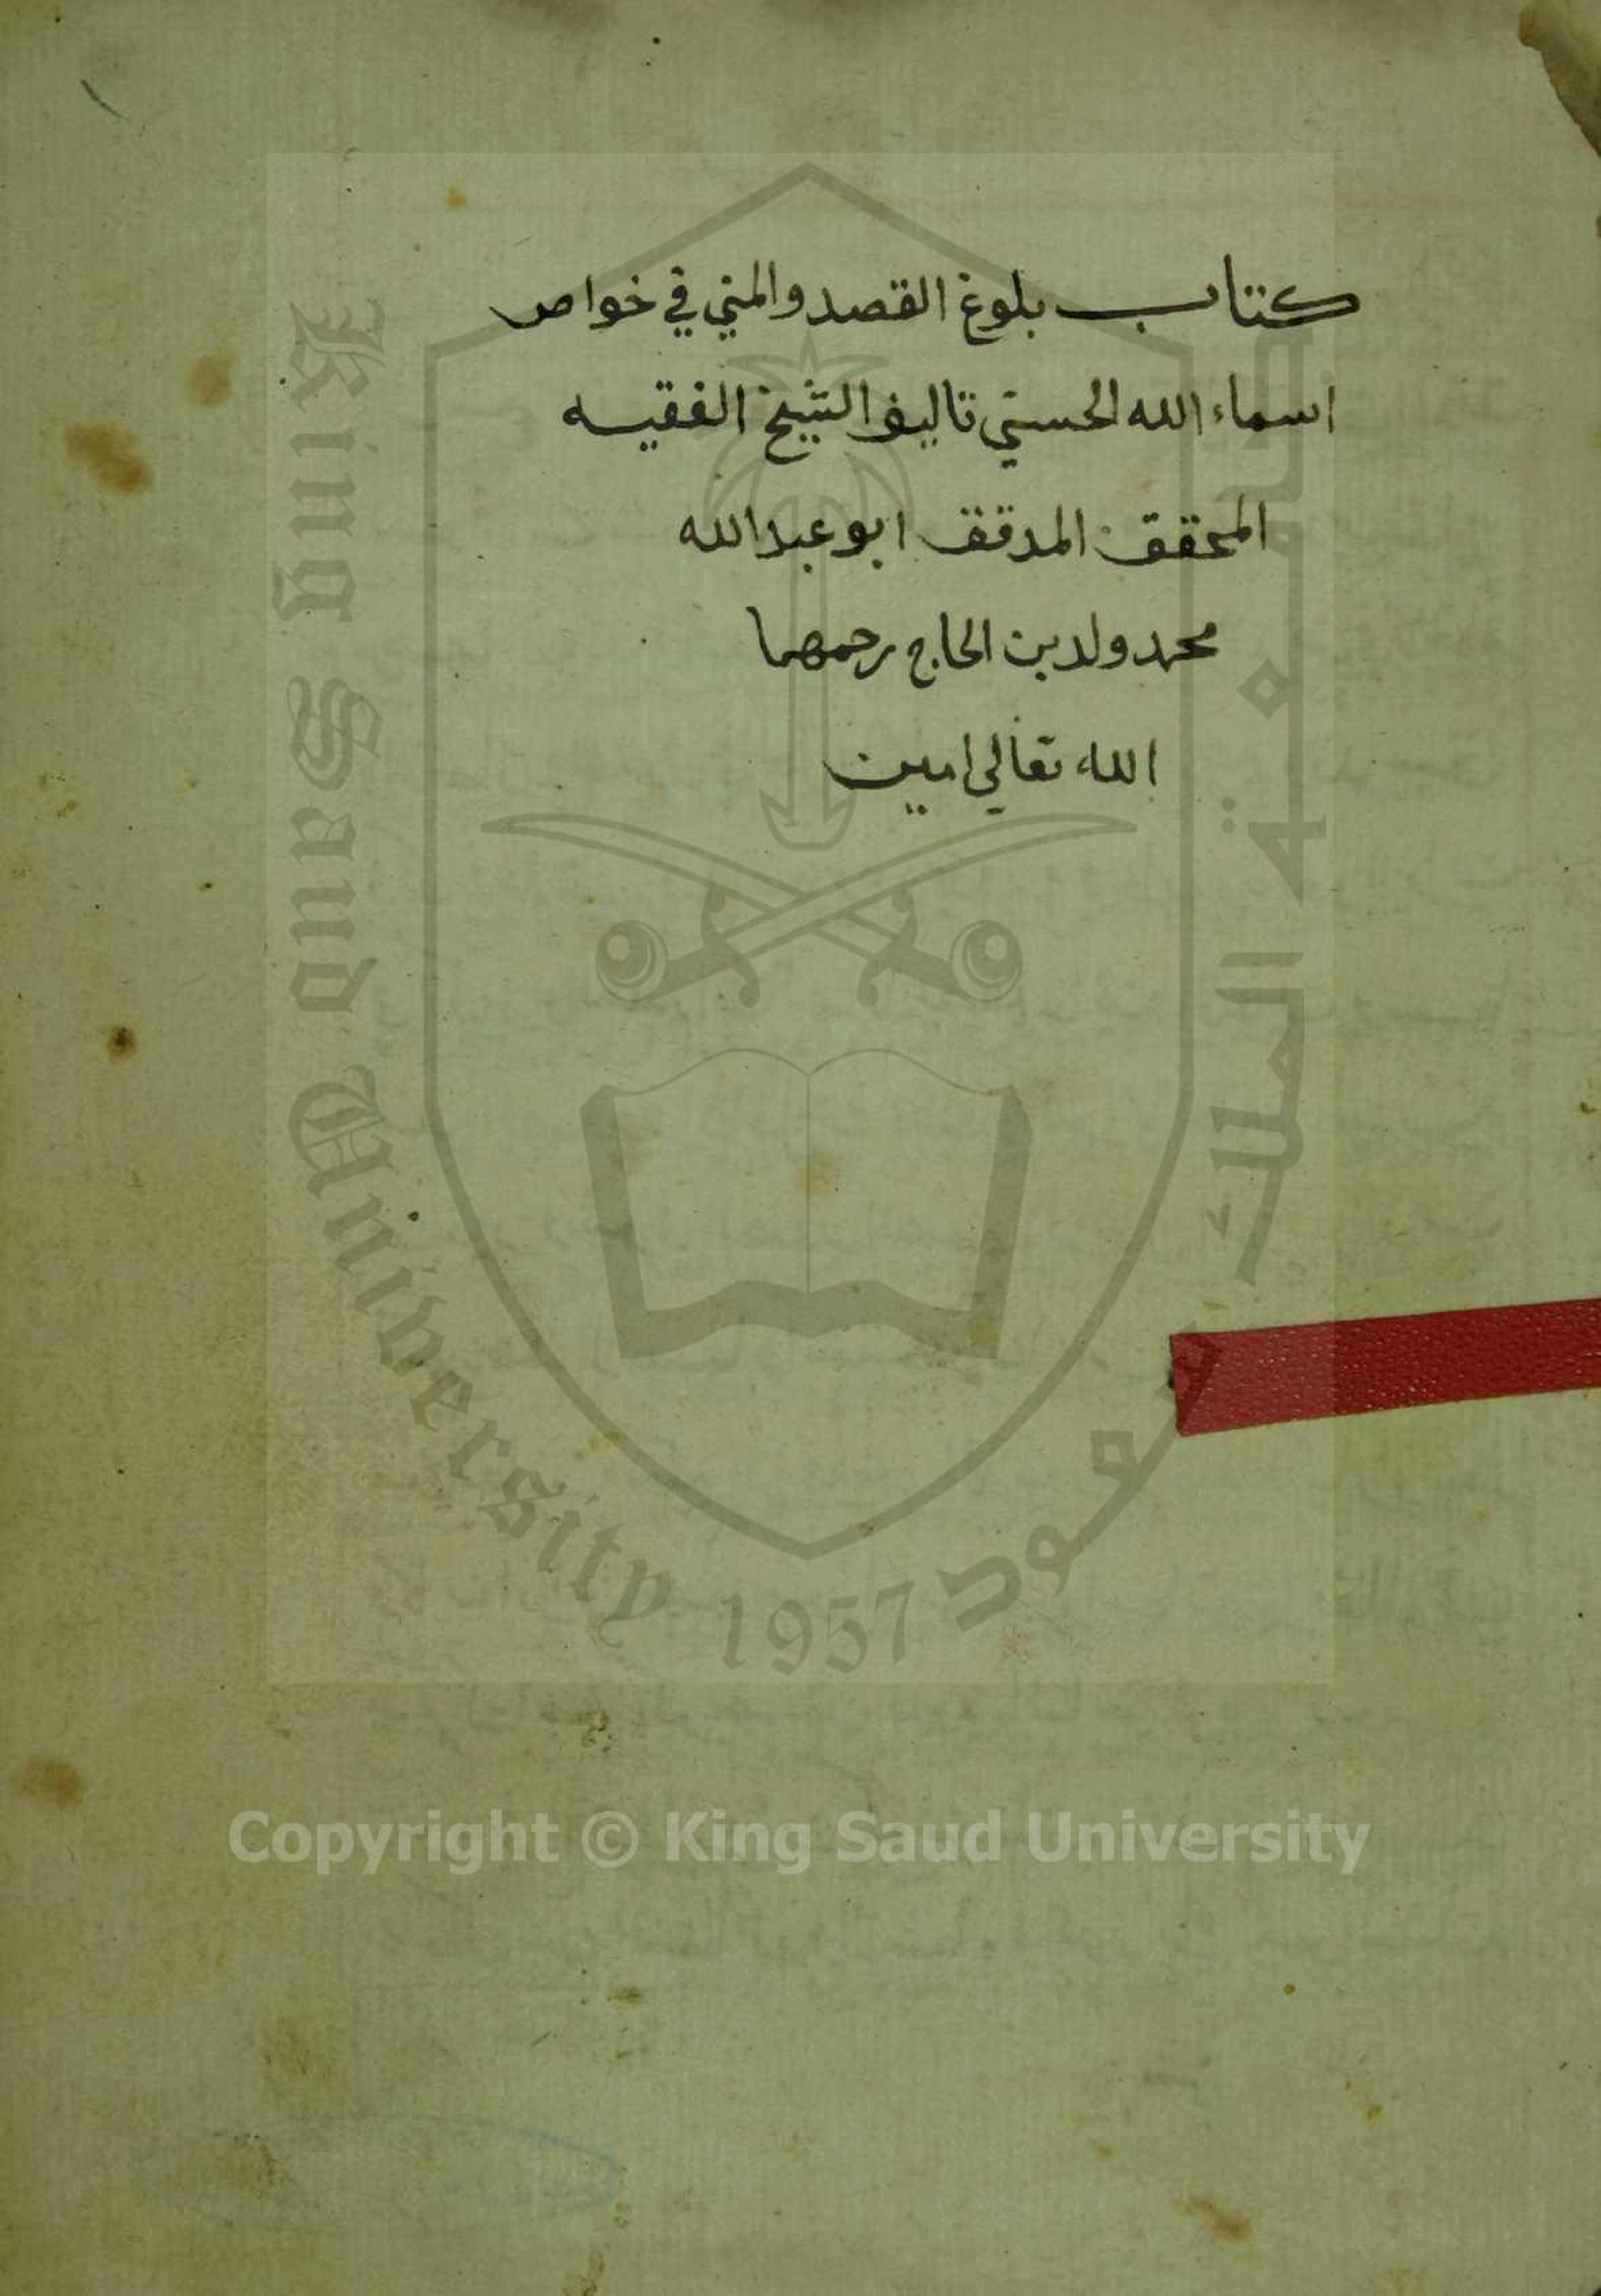 كتاب بلوغ القصد والمني في خواص
اسماء الله الحسني تاليف الشيخ الفقيه
المحقق المدقق ابو عبد الله
محمد ولد بن الحاج رحمهما
الله تعالي امين
King Saud University 1957 جامعة الملك سعود
Copyright © King Saud University